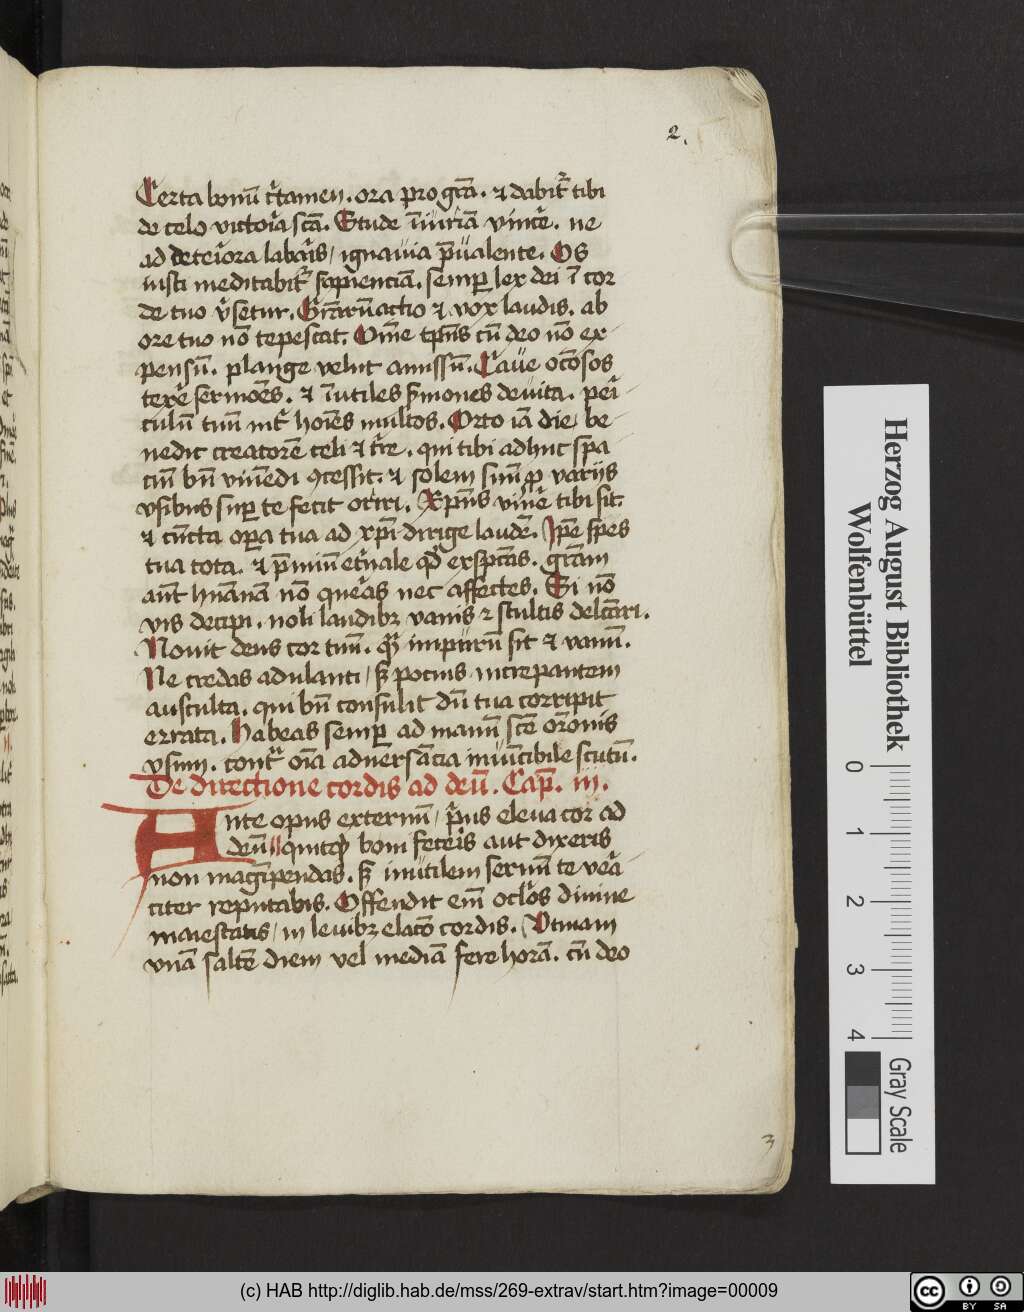 2.
Certa bonū c̄tamen. ora pro gr̄a. et dabit᷑ tibi
de celo victor̄ia sc̄a. Stude īiuriā vincē. ne
ad deteriora labar̄is / ignauia p̄ualente. Os
iusti meditabit᷑ sapienciā. semꝑ lex dei ī cor
de tuo v̄setur. Gr̄arū actio et vox laudis. ab
ore tuo nō tepescat. Om̄e tp̄us cū deo nō ex
pensū. plange velut amissū. Caue ocōsos
texē sermōes. et īutiles s̄mones deuita. peri
culū tuū int̄ hoīes multos. Orto iā die be
nedic creatorē celi et t̄re. qui tibi adhuc spa
ciū bn̄ viuēdi ꝯcessit. et solem suū ꝓ varijs
vsibus suꝑ te fecit oriri. Xp̄us viuē tibi sit.
et cūcta oꝑa tua ad xp̄i dirige laudē. Ip̄e spes
tua tota. et p̄miū et̄nale qd̄ exspectas. gr̄am
aut̄ humanā nō quēas nec affectes. Si nō
vis decipi. noli laudibꝫ vanis et stultis delcāri.
Nouit deus cor tuū. qꝫ impurū sit et vanū.
Ne credas adulanti / sꝫ pocius increpantem
ausculta. qui bn̄ consulit dū tua corripit
errata. Habeas semꝑ ad manū sc̄e or̄onis
vsum. cont᷑ oīa aduersācia inuīcibile scutū.
De directione cordis ad deū. Cap̄. iij.
Ante opus externū / p̄us eleua cor ad
deū quicqd̄ boni feceris aut dixeris
non magīpendas. sꝫ inutilem seruū te vēa
citer reputabis. Offendit em̄ oclōs diuine
maiestatis / in leuibꝫ elacō cordis. Vtinam
vnā saltē diem vel mediā fere horā. cū deo
3
Herzog August Bibliothek
Wolfenbüttel
0 1 2 3 4
Gray Scale
(c) HAB http://diglib.hab.de/mss/269-extrav/start.htm?image=00009
cc BY SA